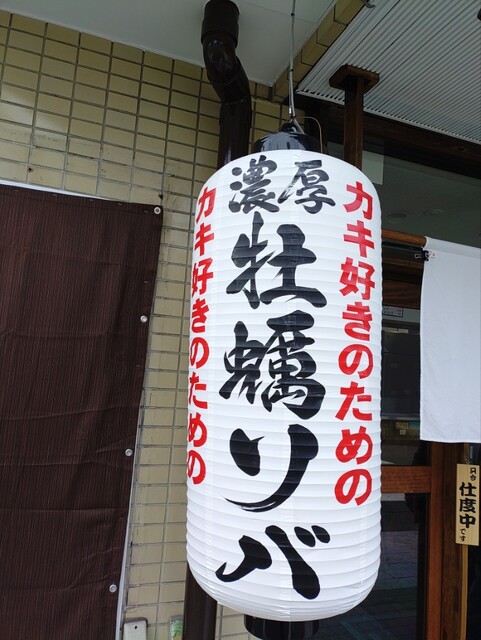 濃厚
牡蠣リバ
カキ好きのための
カキ好きのための
只今
仕度中
です